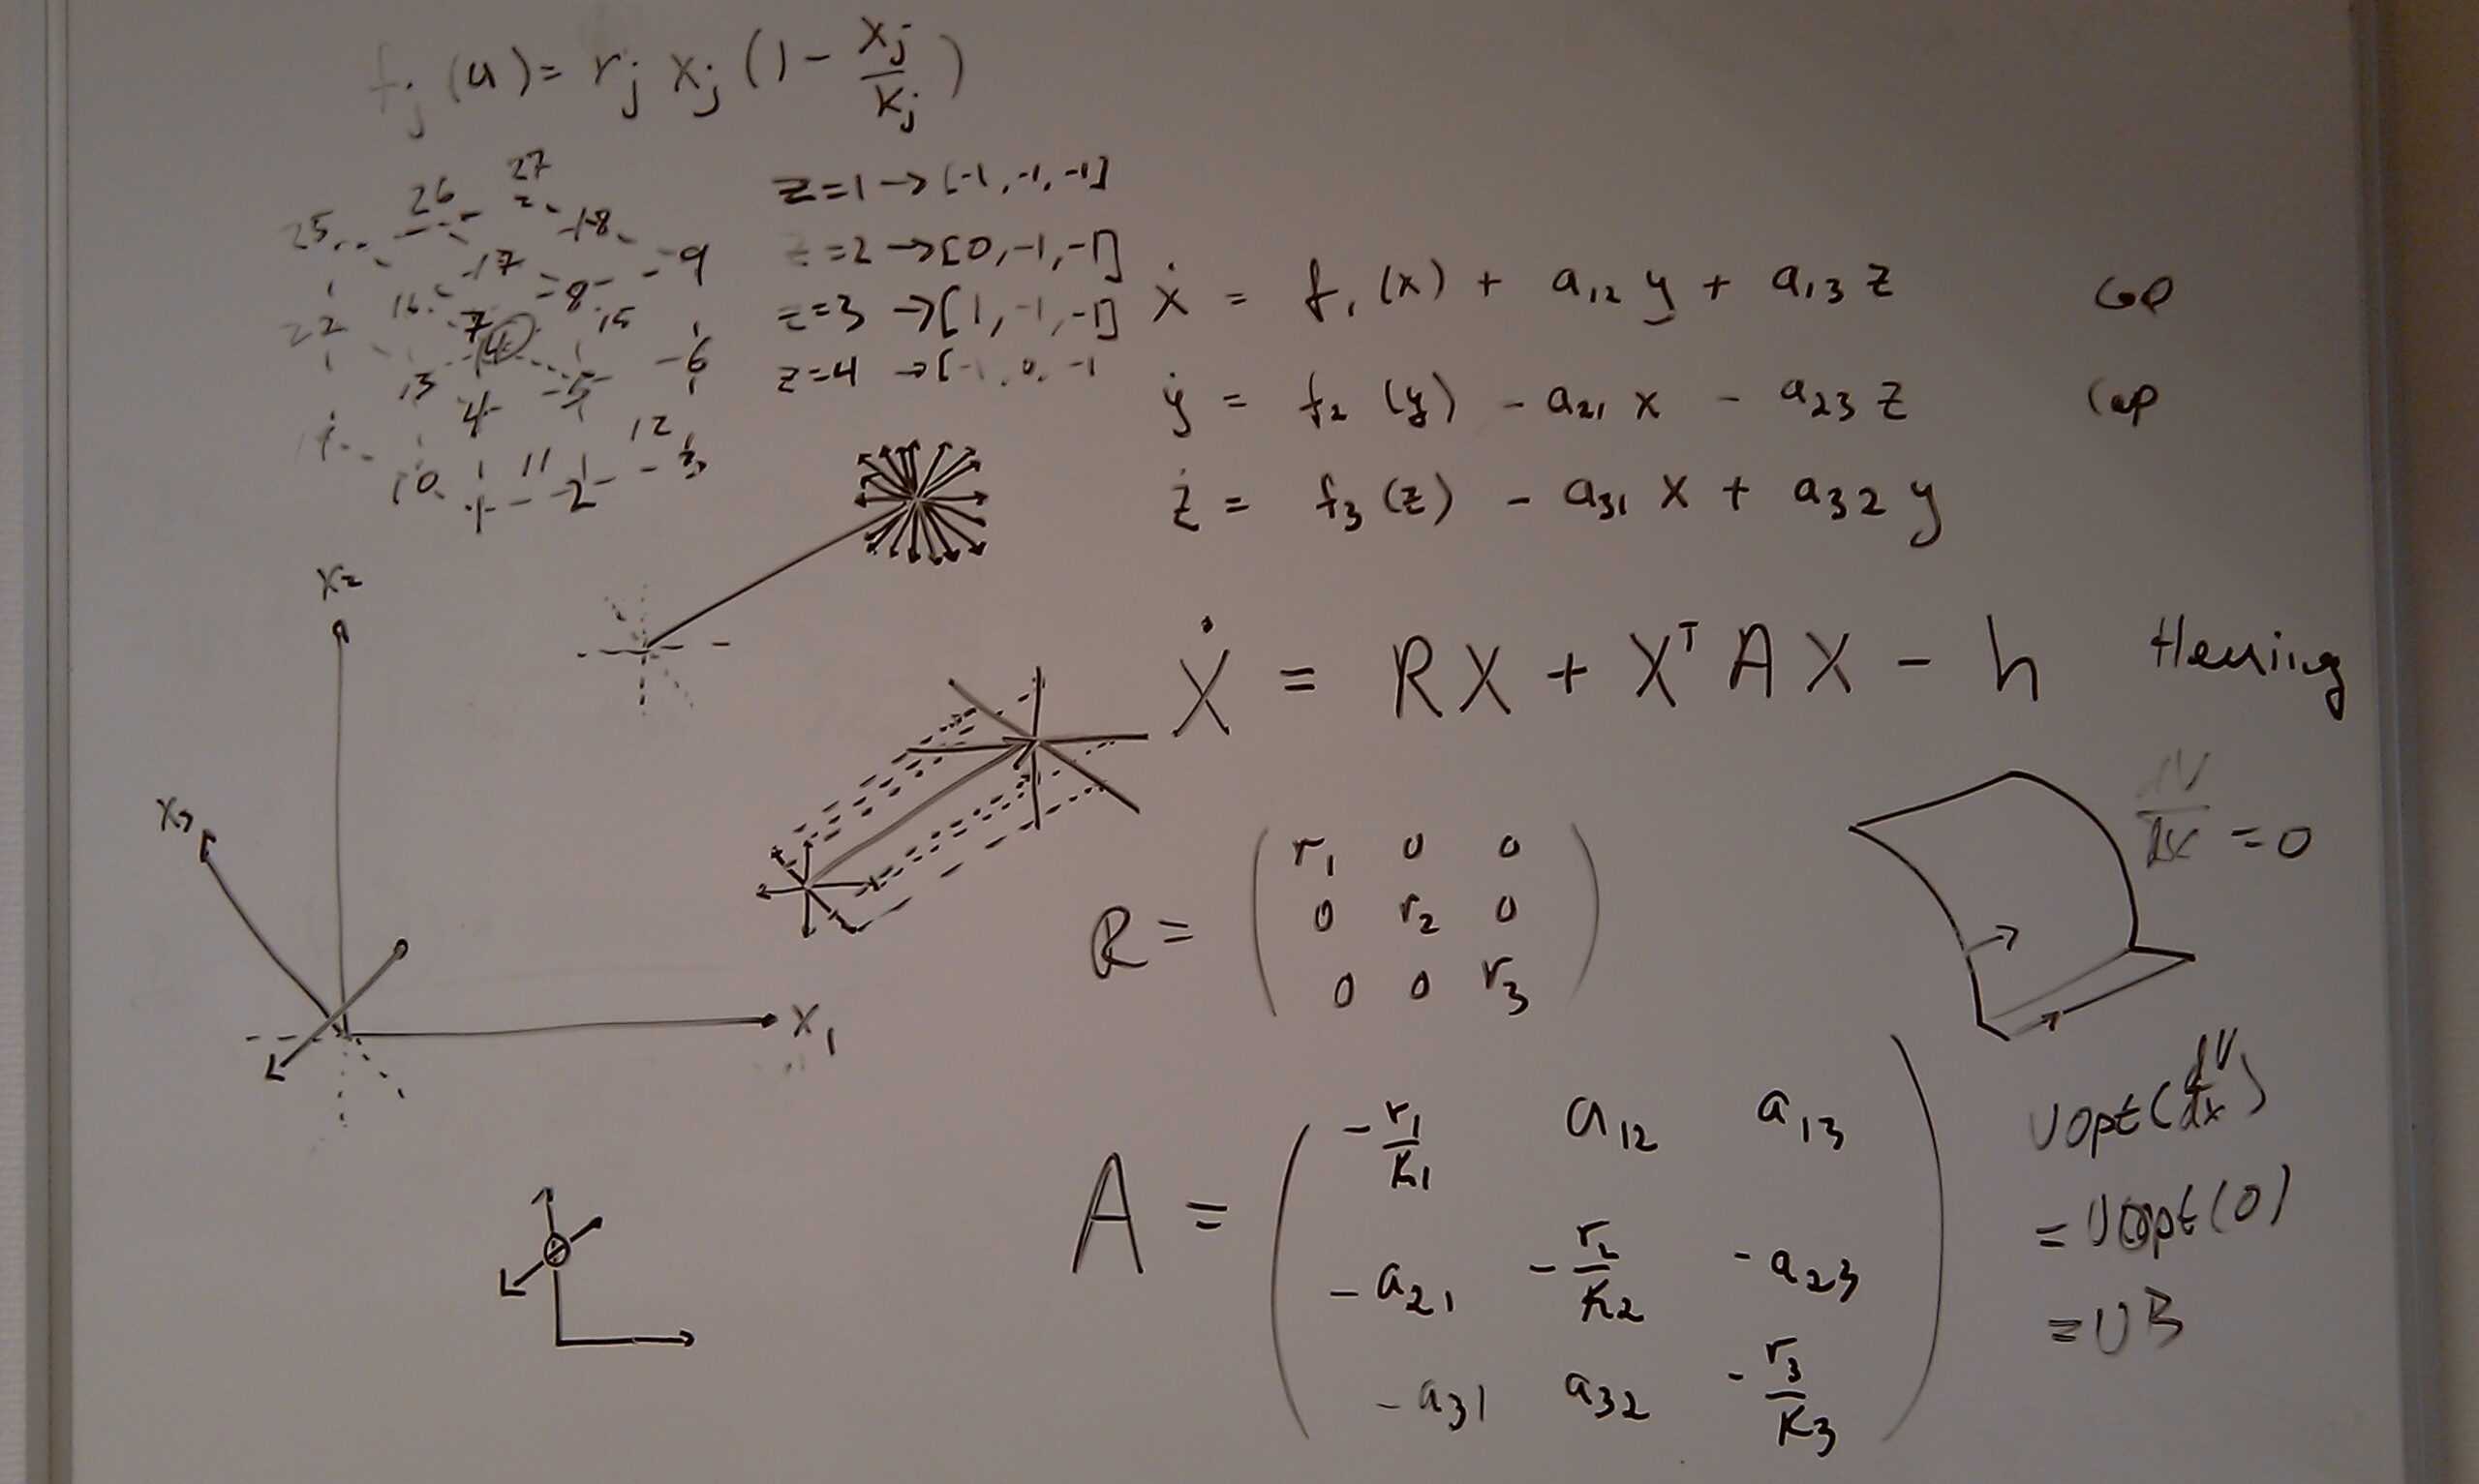 fj (u) = rj xj (1 - xj/Kj)
27
26
25
18
17
9
16
8
7
15
14
22
6
13
5
4
12
11
10
3
1
2
z=1 → [-1, -1, -1]
z=2 → [0, -1, -1]
z=3 → [1, -1, -1]
z=4 → [-1, 0, -1
ẋ = f1 (x) + a12 y + a13 z
ẏ = f2 (y) - a21 x - a23 z
ż = f3 (z) - a31 x + a32 y
x2
x3
x1
Ẋ = RX + X^T A X - h
dV/dx = 0
R = ( r1 0 0
0 r2 0
0 0 r3 )
A = ( -r1/K1 a12 a13
-a21 -r2/K2 -a23
-a31 a32 -r3/K3 )
Uopt(dV/dx)
= Uopt(0)
= UB